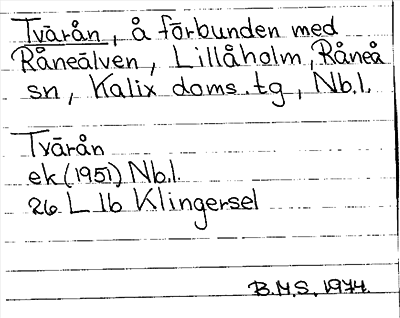 Tvärån, å förbunden med
Råneälven, Lillåholm, Råneå
sn, Kalix doms.tg, Nb.l.
Tvärån
ek (1951) Nb.l.
26 L lb Klingersel
B.M.S. 1974.